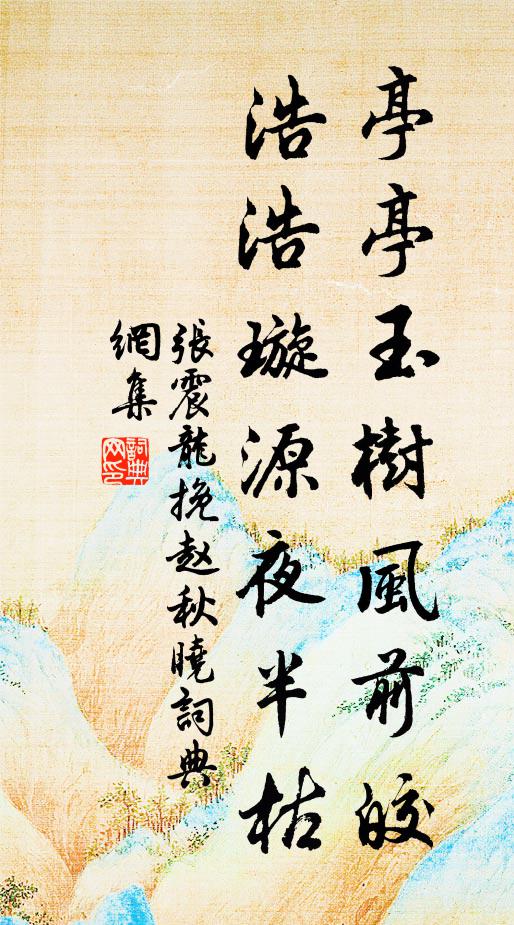 亭亭玉樹風前皎
浩浩璇源夜半枯
張震龍挽赵秋曉詞典
網集
詞典
网印